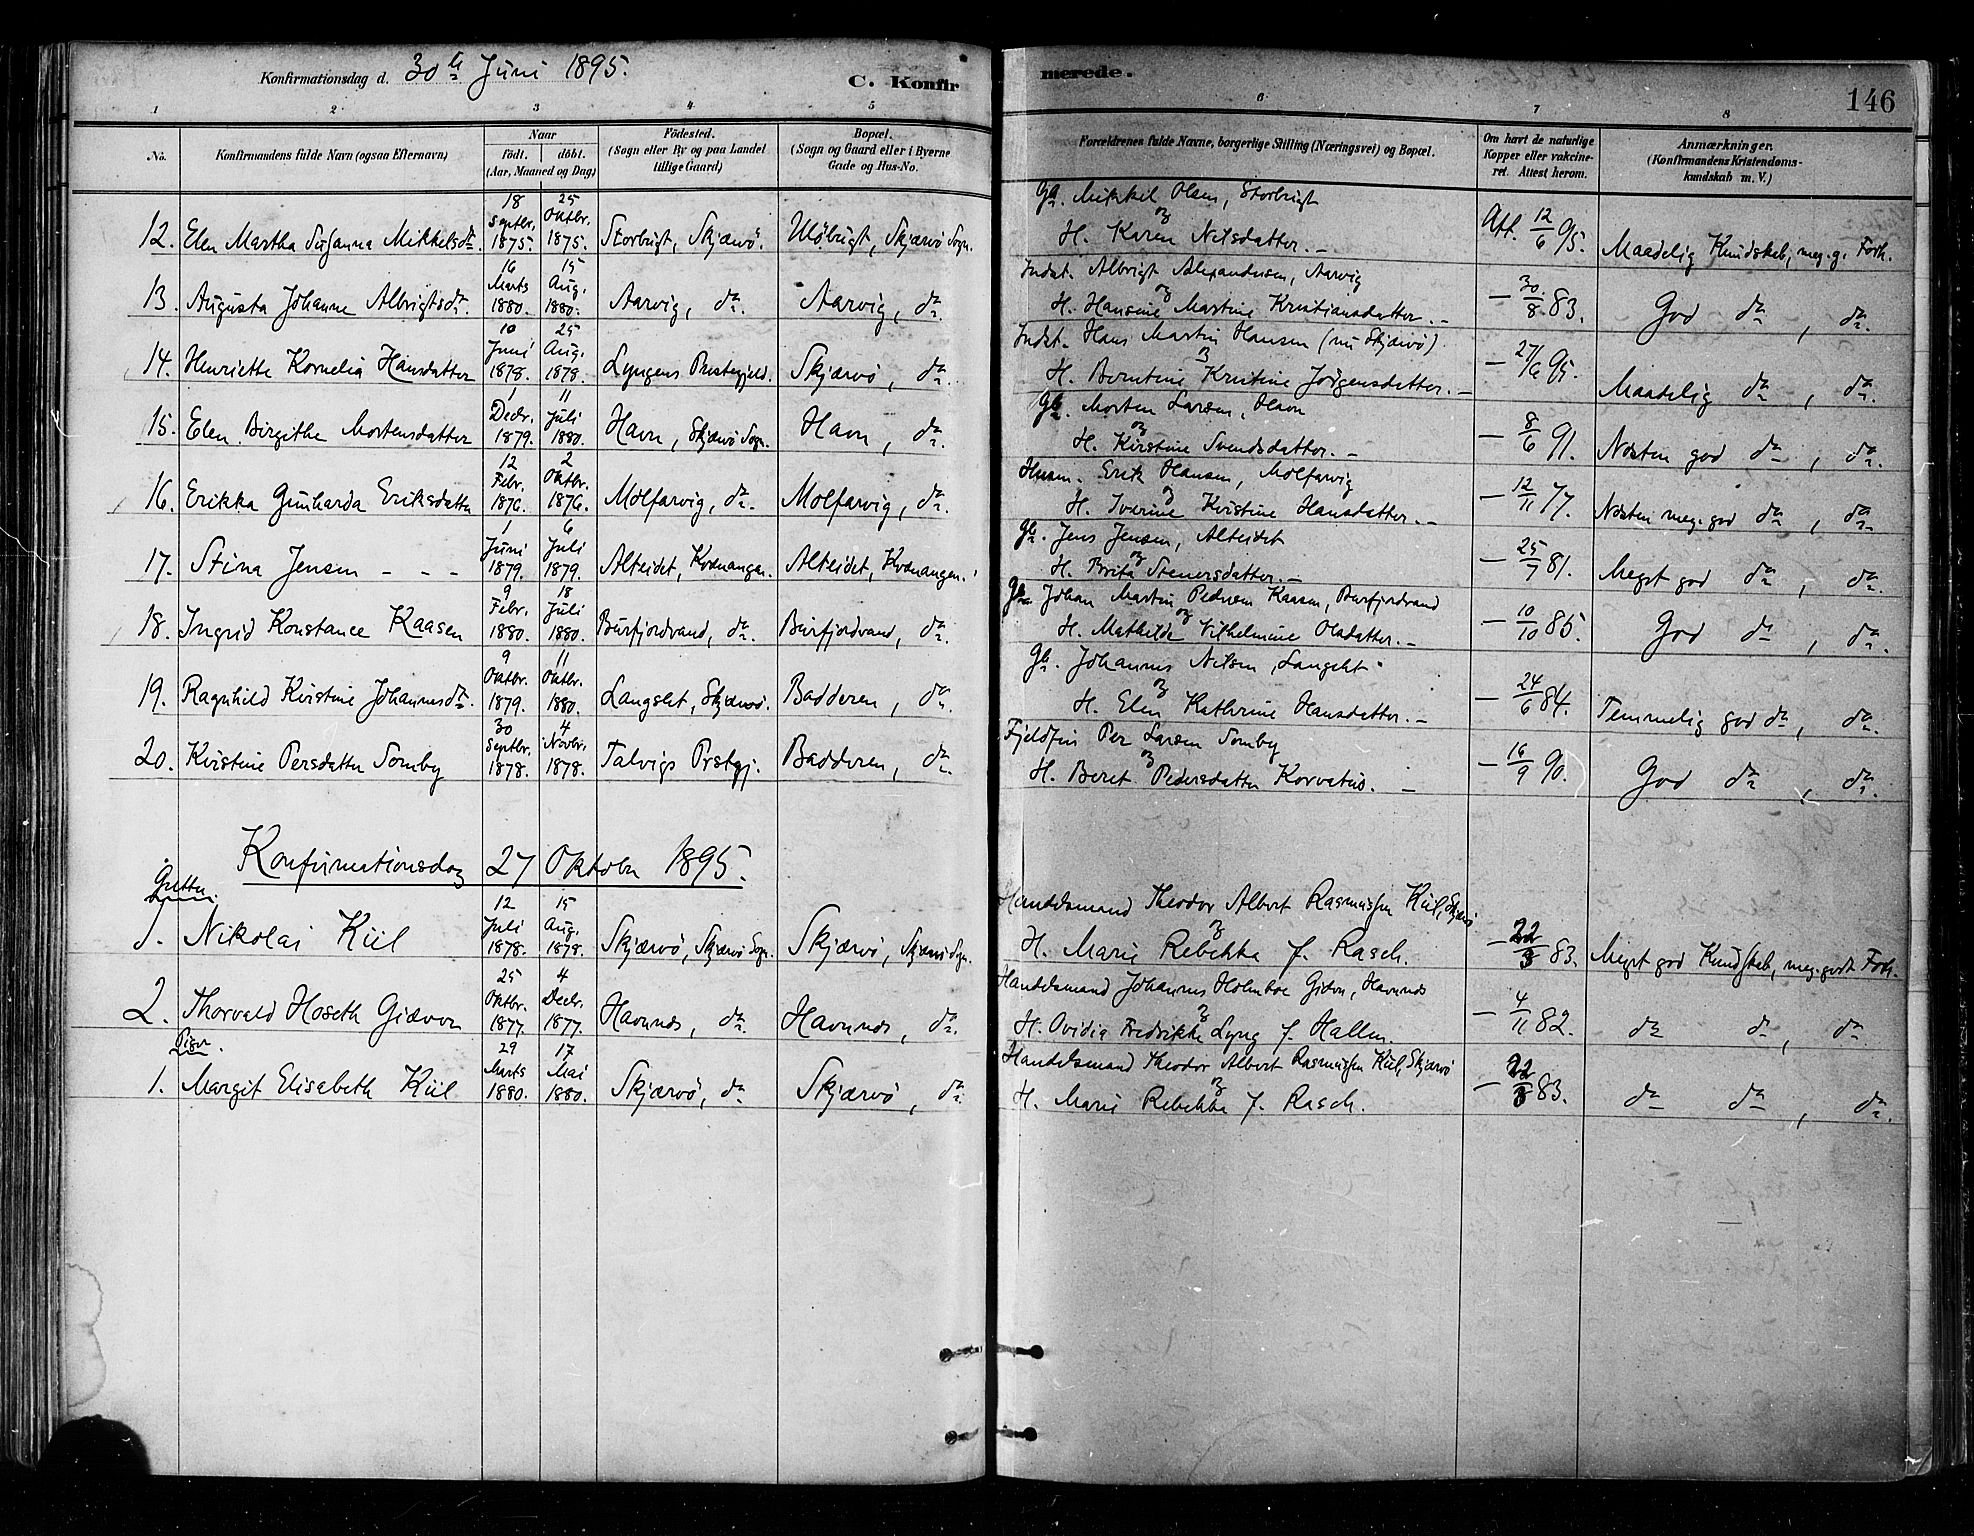 Konfirmationsdag d. 30te Juni 1895.
C. Konfirmerede.
146
1 2 3 4 5 6 7 8
No. Konfirmandens fulde Navn (ogsaa Efternavn) Naar födt. döbt. (Aar, Maaned og Dag) Födested. (Sogn eller By og paa Landet tillige Gaard) Bopæl. (Sogn og Gaard eller i Byerne Gade og Hus-No. Forældrenes fulde Navne, borgerlige Stilling (Næringsvei) og Bopæl. Om havt de naturlige Kopper eller vakcineret. Attest herom. Anmærkninger. (Konfirmandens Kristendomskundskab m. V.)
12. Elen Martha Susanna Mikkelsdr. 18 Septbr. 1875. 25 Oktbr. 1875. Storbugt, Skjærvö. Skjærvö Sogn. Mikkel Olsen, Storbugt og H. Karen Nilsdatter. – Att. 12/6 95. Maadelig Kundskab, meg. g. Forh.
13. Augusta Johanne Albrigtsdr. 16 Marts 1880. 15 Aug. 1880. Aarvig, do. Aarvig, do. Indst. Albrigt Alexandersen, Aarvig og H. Hansine Martine Kristiansdatter. – – 30/8 83. God do, do.
14. Henriette Kornelia Hansdatter 10 Juni 1878. 25 Aug. 1878. Lyngens Prestegjeld. Skjærvö, do. Indst. Hans Martin Hansen (nu Skjærvö) og H. Berntine Kristine Jörgensdatter. – – 27/6 95. Maadelig do, do.
15. Elen Birgithe Mortensdatter 1 Decbr. 1879. 11 Juli 1880. Havn, Skjærvö Sogn. Havn, do. Gb. Morten Larsen, Havn og H. Kirstine Svendsdatter. – – 8/6 91. Næsten god do, do.
16. Erikka Gunharda Eriksdatter 12 Febr. 1876. 2 Oktbr. 1876. Molfarvig, do. Molfarvig, do. Husm. Erik Hansen, Molfarvig og H. Iverine Kristine Hansdatter. – – 12/11 77. Næsten meg. god do, do.
17. Stina Jensen - - - 1 Juni 1879. 6 Juli 1879. Alteidet, Kvænangen. Alteidet, Kvænangen. Gb. Jens Jensen, Alteidet og H. Brita Steuersdatter. – – 25/7 81. Meget god do, do.
18. Ingrid Konstance Kaasen 9 Febr. 1880. 18 Juli 1880. Burfjordvand, do. Burfjordvand, do. Gb. Johan Martin Pedersen Kaasen, Burfjordvand og H. Mathilde Vilhelmine Olsdatter. – – 10/10 85. God do, do.
19. Ragnhild Kirstine Johannesdr. 9 Oktbr. 1879. 11 Oktbr. 1880. Langslet, Skjærvö. Badderen, do. Gb. Johannes Nilsen, Langslet og H. Elen Kathrine Hansdatter. – – 24/6 84. Temmelig god do, do.
20. Kirstine Persdatter Somby 30 Septbr. 1878. 4 Novbr. 1878. Talvigs Prstgj. Badderen, do. Fjeldfin Per Larsen Somby og H. Beret Pedersdatter Korvatus. – – 16/9 90. God do, do.
Konfirmationsdag 27 Oktober 1895.
Gutter
1. Nikolai Kiil 12 Juli 1878. 15 Aug. 1878. Skjærvö, Skjærvö Sogn. Skjærvö, Skjærvö Sogn. Handelsmand Theodor Albert Rasmussen Kiil, Skjærvö og H. Marie Rebekka f. Rasch. – 22/3 83. Meget god Kundskab, meg. godt Forh.
2. Thorvald Hoseth Giæver 25 Oktbr. 1877. 4 Decbr. 1877. Havnnes, do. Havnnes, do. Handelsmand Johannes Holmboe Giæver, Havnnes og H. Ovidia Fredrikke Lyng f. Hallen. – 4/11 82. do do, do
Piger.
1. Margit Elisabeth Kiil 29 Marts 1880. 17 Mai 1880. Skjærvö, do. Skjærvö, do. Handelsmand Theodor Albert Rasmussen Kiil, Skjærvö og H. Marie Rebekka f. Rasch. – 22/3 83. do do, do.